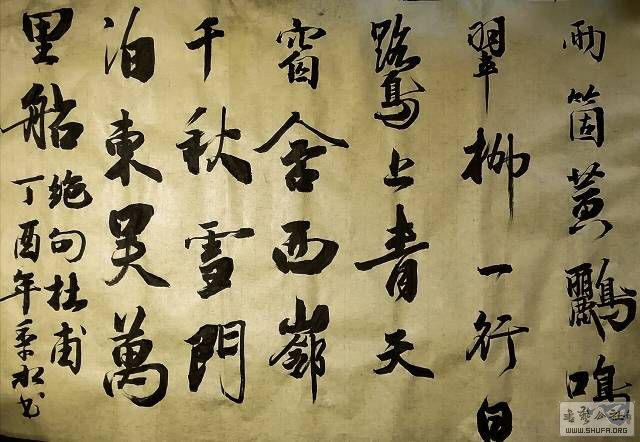 兩箇黃鸝鳴
翠柳一行白
鷺上青天
窗含西嶺
千秋雪門
泊東吳萬
里船
絶句杜甫
丁酉年松书
书艺公社
WWW.SHUFA.ORG